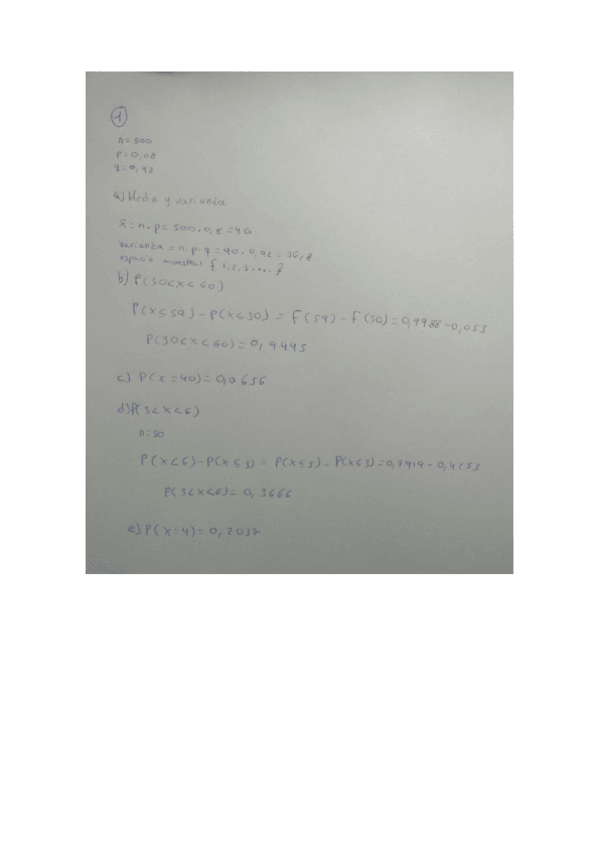 1
n=500
p=0,08
q=0,92
a) Media y varianza
x̄=n.p=500.0,8=40
Varianza=n.p.q=40.0,92=36,8
espacio muestral {1,2,3....}
b) P(30<x<60)
P(x≤59)-P(x≤30)=F(59)-F(30)=0,9988-0,055
P(30<x<60)=0,9445
c) P(x=40)=0,0656
d) P(3<x<6)
n=50
P(x<6)-P(x≤3)=P(x≤5)-P(x≤3)=0,7919-0,4253
P(3<x<6)=0,3666
e) P(x=4)=0,2037